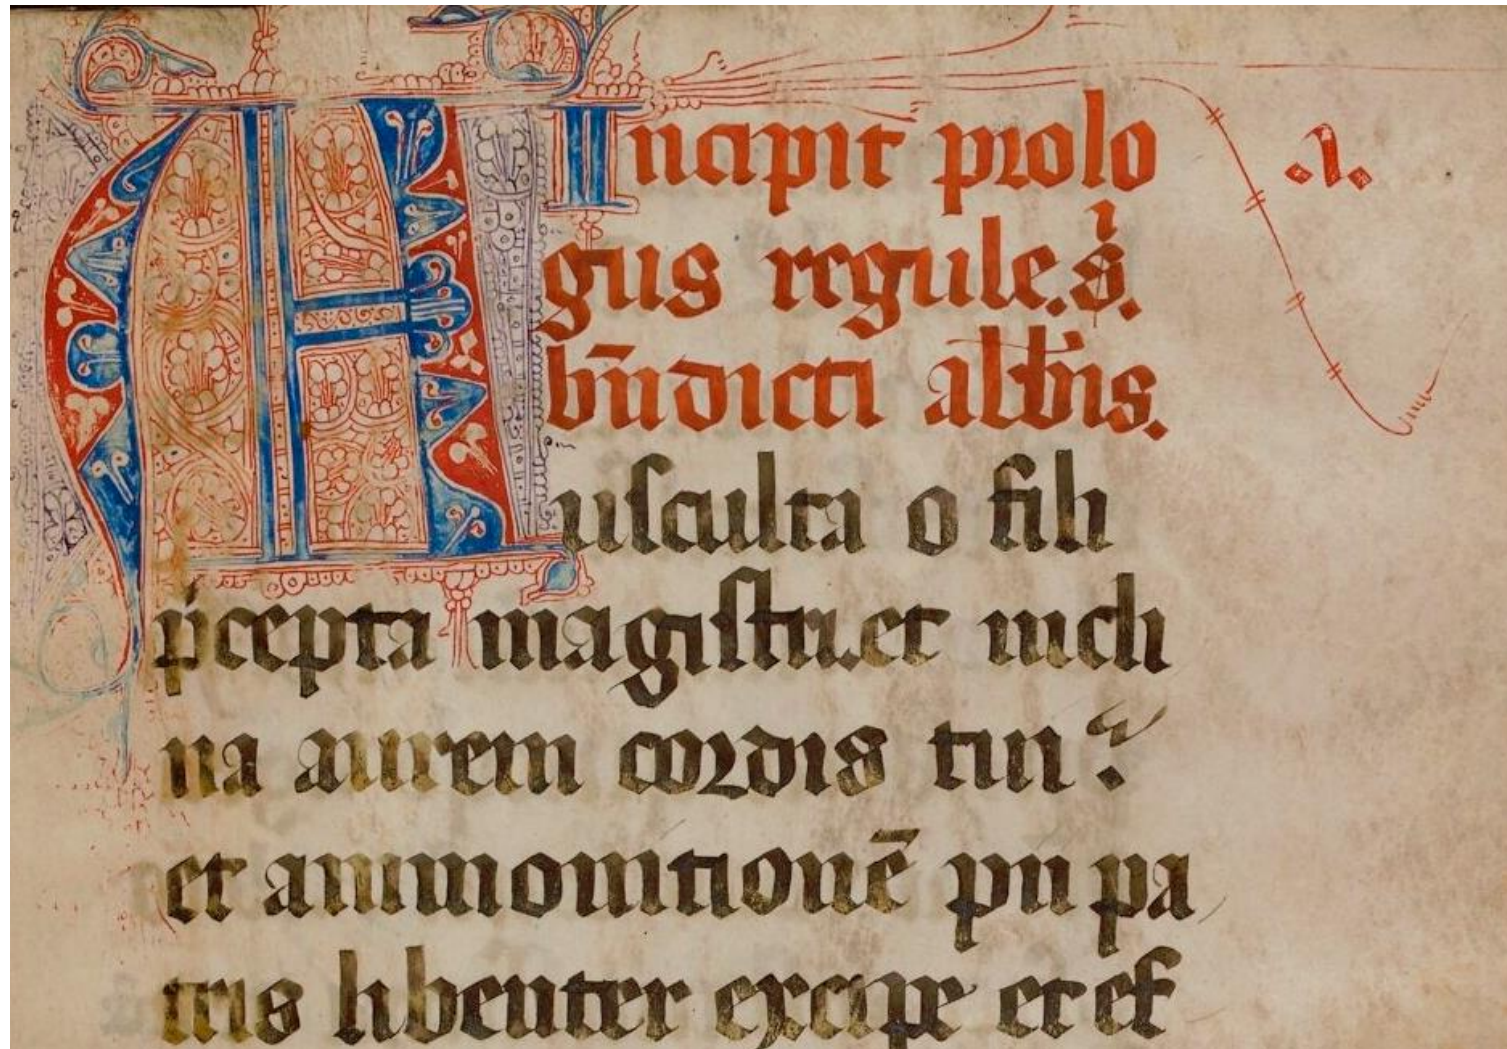 Incipit prolo
.1.
gus regule.sͥ.
bn̄dicti abb̄is.
Auſculta o fili
p̄cepta magiſtri.et incli
na aurem cordis tui?
et ammonitionē pii pa
tris libenter excipe et ef